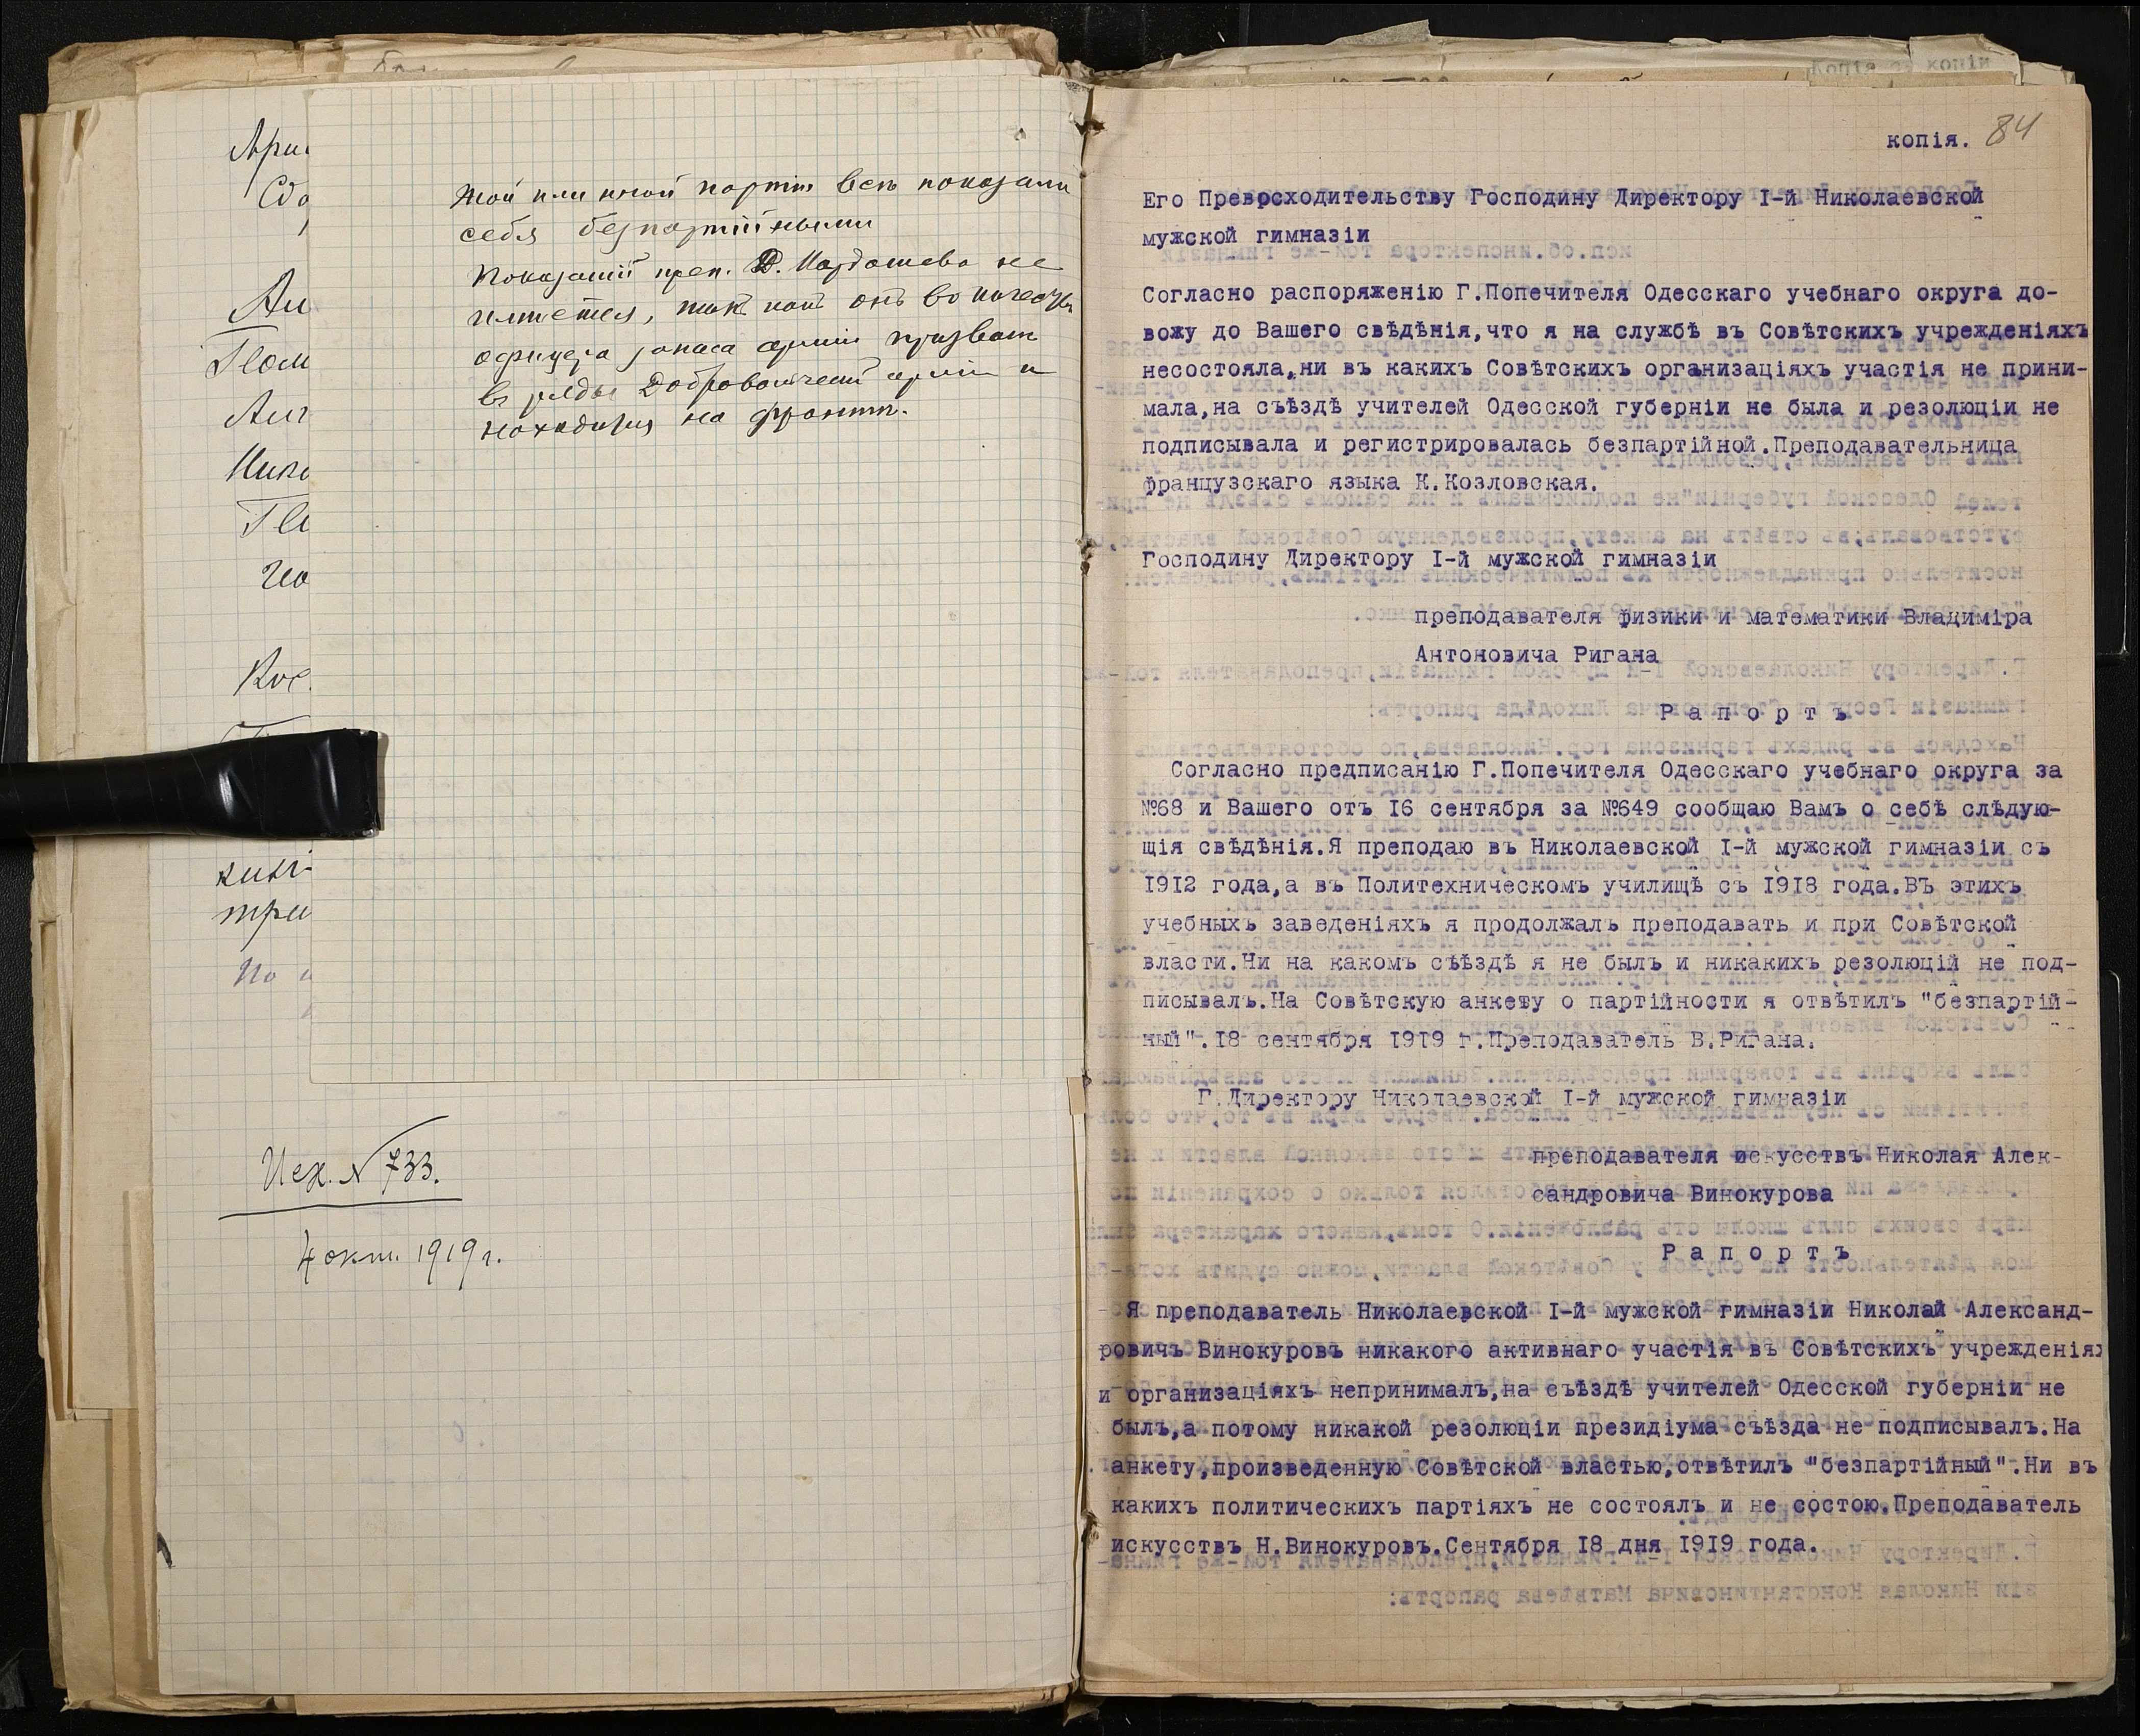 При
Сдо
той или иной партіи всѣ показали
себя безпартійными
Показаній преп. Д. Кардашева не
имѣется, такъ какъ онъ во
офицера запаса арміи призванъ
въ ряды Добровольческ арміи и
находится на фронтѣ.
Исх. № 733.
4 окт. 1919 г.
Копія съ копіи
84
копія.
Его Превосходительству Господину Директору I-й Николаевской
мужской гимназіи
Согласно распоряженію Г.Попечителя Одесскаго учебнаго округа до-
вожу до Вашего свѣдѣнія,что я на службѣ въ Совѣтскихъ учрежденіяхъ
несостояла,ни въ какихъ Совѣтскихъ организаціяхъ участія не прини-
мала,на съѣздѣ учителей Одесской губерніи не была и резолюціи не
подписывала и регистрировалась безпартійной.Преподавательница
французскаго языка К.Козловская.
Господину Директору I-й мужской гимназіи
преподавателя физики и математики Владиміра
Антоновича Ригана
Рапортъ
Согласно предписанію Г.Попечителя Одесскаго учебнаго округа за
№68 и Вашего отъ I6 сентября за №649 сообщаю Вамъ о себѣ слѣдую-
щія свѣдѣнія.Я преподаю въ Николаевской I-й мужской гимназіи съ
I9I2 года,а въ Политехническомъ училищѣ съ I9I8 года.ВЪ этихъ
учебныхъ заведеніяхъ я продолжалъ преподавать и при Совѣтской
власти.Ни на какомъ съѣздѣ я не былъ и никакихъ резолюцій не под-
писывалъ.На Совѣтскую анкету о партійности я отвѣтилъ "безпартій-
ный".I8 сентября I9I9 г.Преподаватель В.Ригана.
Г.Директору Николаевской I-й мужской гимназіи
преподавателя искусствъ Николая Алек-
сандровича Винокурова
Рапортъ
Я преподаватель Николаевской I-й мужской гимназіи Николай Александ-
ровичъ Винокуровъ никакого активнаго участія въ Совѣтскихъ учрежденіях
и организаціяхъ непринималъ,на съѣздѣ учителей Одесской губерніи не
былъ,а потому никакой резолюціи президіума съѣзда не подписывалъ.На
анкету,произведенную Совѣтской властью,отвѣтилъ "безпартійный".Ни въ
какихъ политическихъ партіяхъ не состоялъ и не состою.Преподаватель
искусствъ Н.Винокуровъ.Сентября I8 дня I9I9 года.